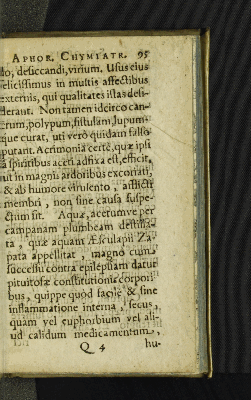 APHOR. CHYMIATR. 95
do, desiccandi, virium. Usus eius
felicissimus in multis affectibus
externis, qui qualitates istas desi-
derant. Non tamen idcirco can-
crum, polypum, fistulam, lupum-
que curat, uti verò quidam falsò
putant. Acrimonia certè, quæ ipsi
à spiritibus aceti adfixa est, efficit,
ut in magnis ardoribus excoriati,
& ab humore virulento, afflicti
membri, non sine causa suspe-
ctum sit. Aquæ, acetumve per
campanam plumbeam destilla-
ta, quæ aquam Æsculapii Za-
pata appellitat, magno cum
successu contra epilepsiam datur
pituitosæ constitutionis corpori-
bus, quippe quod facilè & sine
inflammatione interna, secus,
quàm vel euphorbium vel ali-
ud calidum medicamentum,
Q 4 hu-